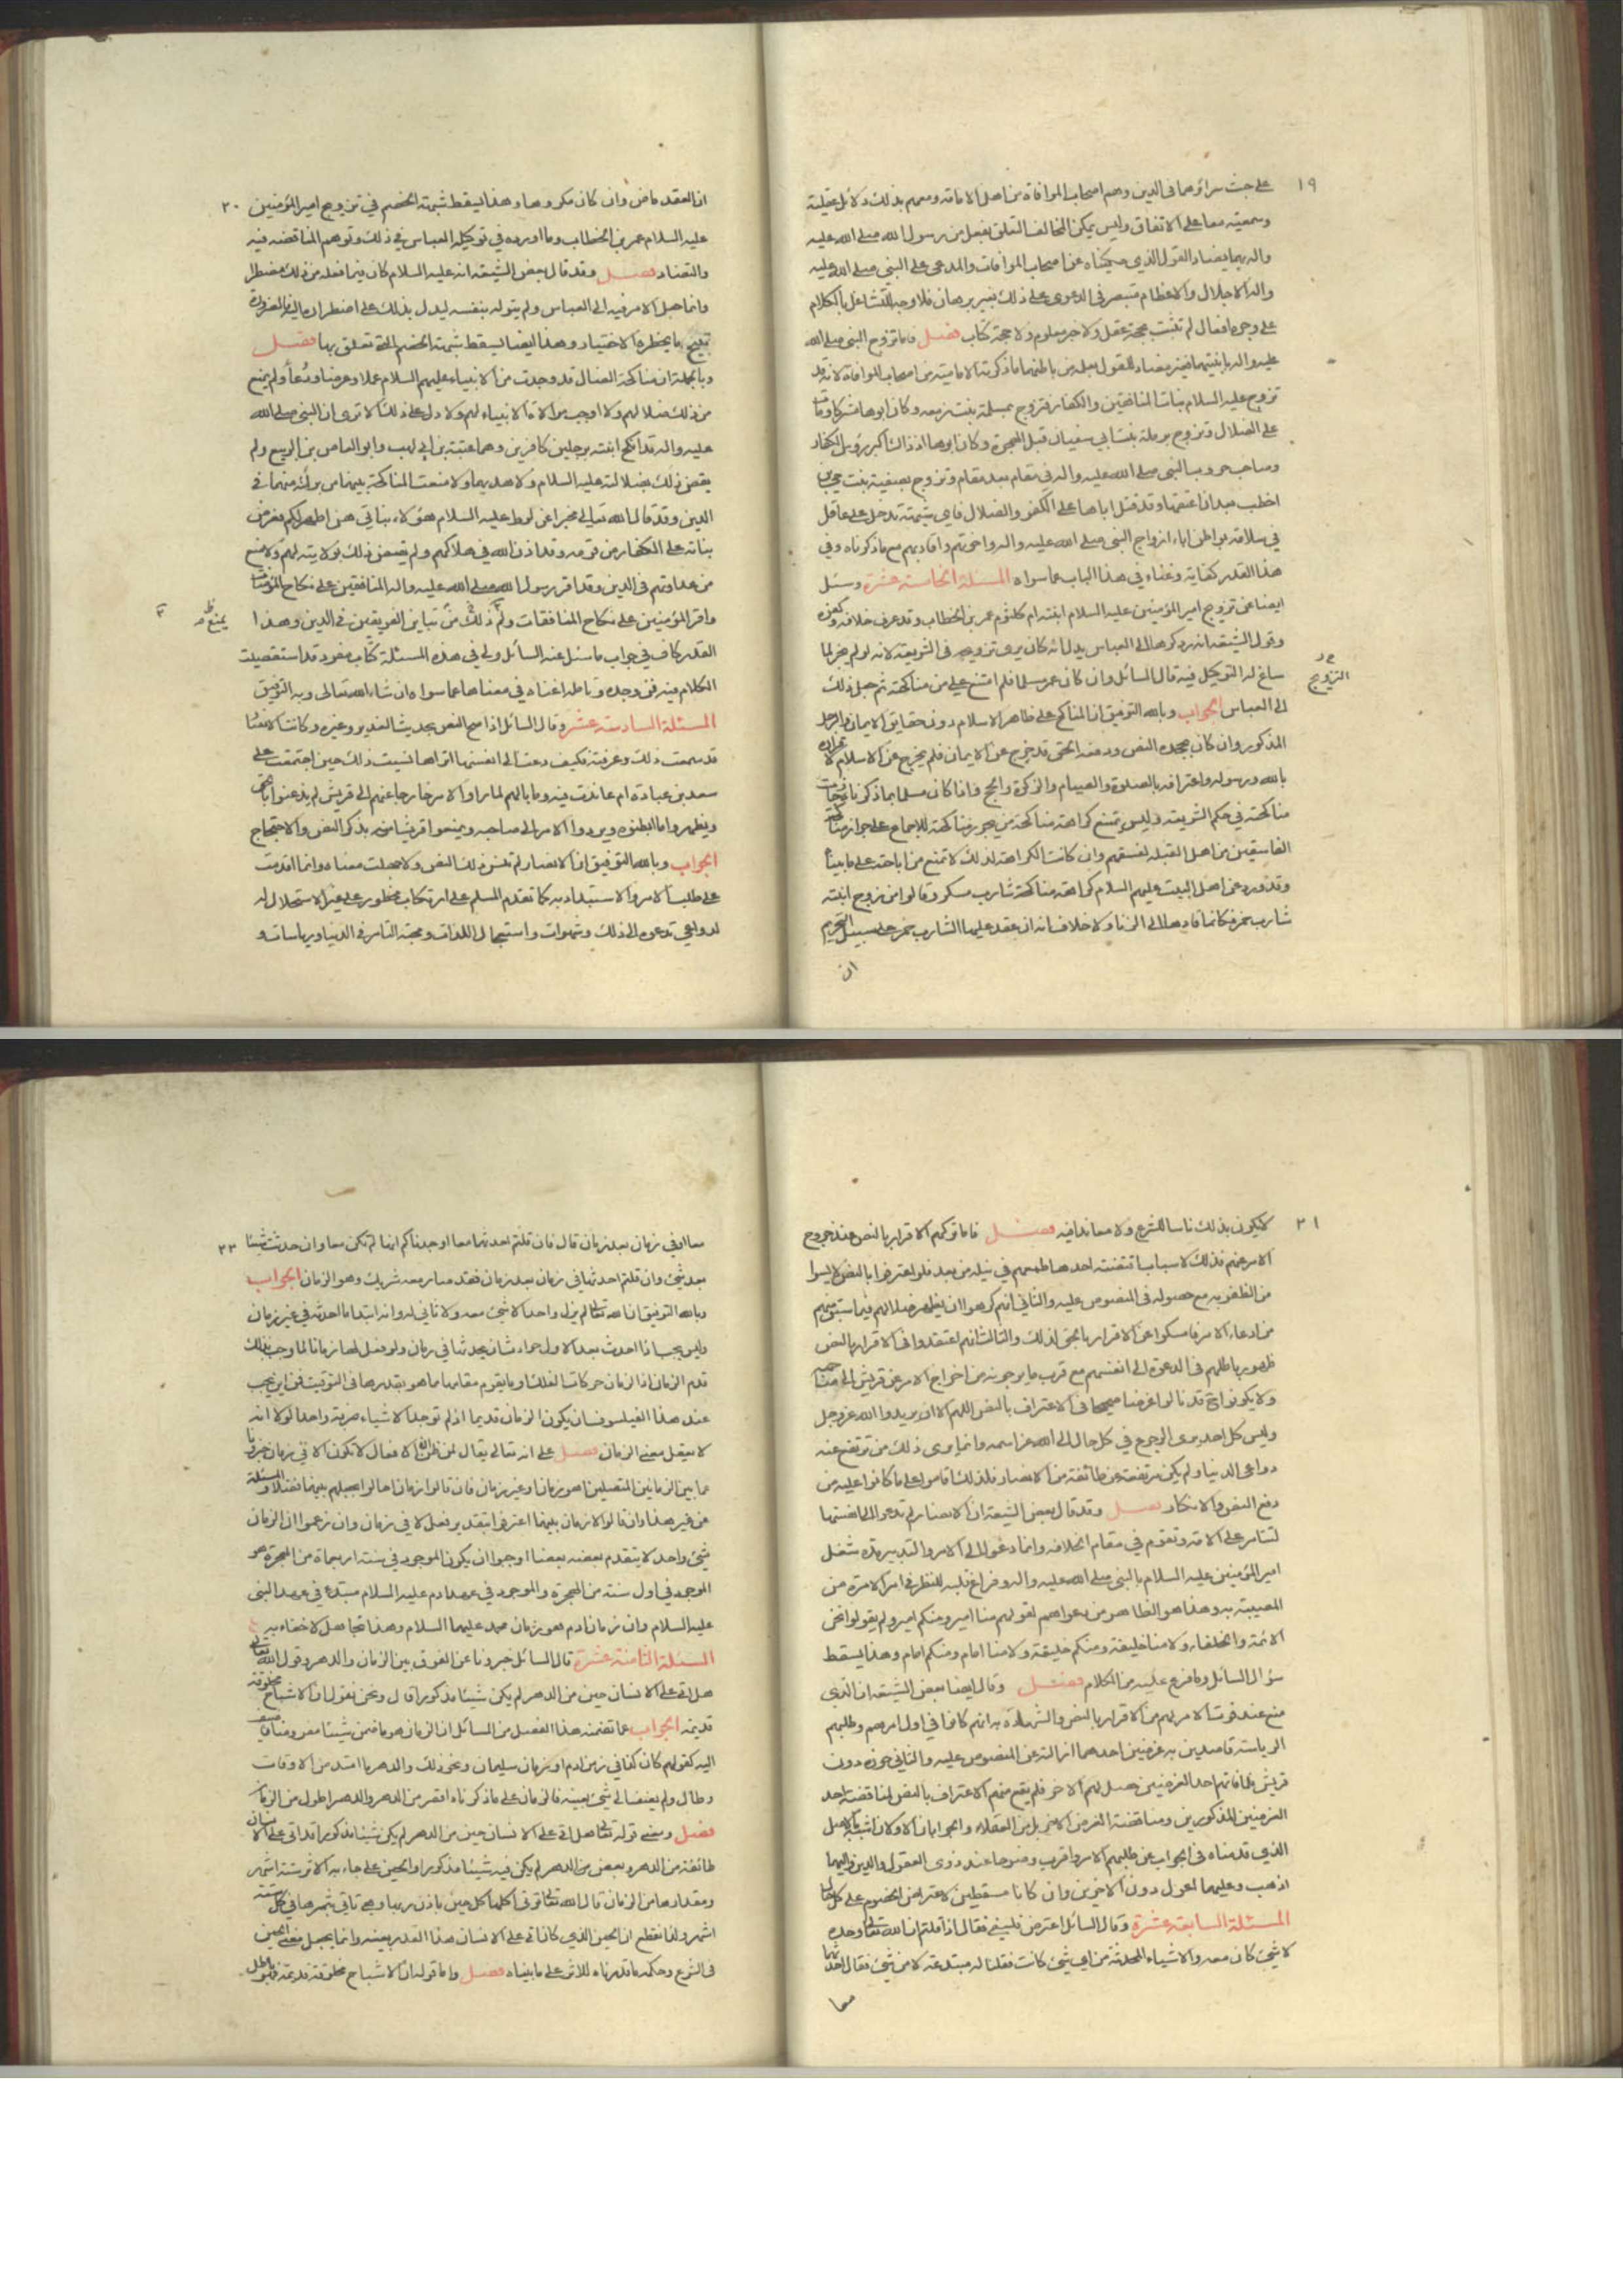 ١٩
على خبث سرائرهما في الدين وهم اصحاب الموافاة من اهل الامامة ومعهم بذلك دلائل عقلية
وسمعية معا على الاتفاق وليس يمكن المخالف التعلق بفعل من رسول الله صلى الله عليه
واله بهما يضاد القول الذي حكيناه عن اصحاب الموافات والمدعى على النبي صلى الله عليه
واله الاجلال والاعظام مقتصر في الدعوى على ذلك بغير برهان فلا وجه للتشاغل بالكلام
على وجوه افعال لم تثبت بحجة عقل ولا خبر معلوم ولا حجة كتاب فصل فاما تزوج النبي صلى الله
عليه واله بابنتيهما فغير مضاد للقول بعلمه من باطنهما ما ذكرته الامامية من اصحاب الموافاة لانه قد
تزوج عليه السلام بنات المنافقين والكفار فتزوج بسلمة بنت زمعه وكان ابوها مشركا ومات
على الضلال وتزوج برملة بنت ابي سفيان قبل الهجرة وكان ابوها اذ ذاك اكبر رؤس الكفار
وصاحب حروب النبي صلى الله عليه واله في مقام بعد مقام وتزوج بصفية بنت حيي بن
اخطب بعد ان اعتقها وقد قتل اباها على الكفر والضلال فاي شبهة تدخل على عاقل
في سلامة بواطن اباء ازواج النبي صلى الله عليه واله واخوتهم واقاربهم مع ما ذكرناه وفي
هذا القدر كفاية وغناء في هذا الباب عما سواه المسئلة الخامسة عشرة وسئل
ايضا عن تزويج امير المؤمنين عليه السلام ابنته ام كلثوم عمر بن الخطاب وقد عرف خلافه وكفره
وقول الشيعة انه رد كرها الى العباس يدل انه كان يرى تزويجه في الشريعة لانه لو لم يجز لما
ساغ له التوكيل فيه قال السائل وان كان عمر مسلما فلم امتنع علي من مناكحته ثم جعل ذلك
الى العباس الجواب وبالله التوفيق ان المناكح على ظاهر الاسلام دون حقايق الايمان والرجل
المذكور وان كان بجحده النص ودفعه الحق قد خرج عن الايمان فلم يخرج عن الاسلام لاقراره
بالله ورسوله واعترافه بالصلوة والصيام والزكوة والحج واذا كان مسلما بما ذكرناه جازت
مناكحته في حكم الشريعة وليس يمتنع كراهة مناكحة من يجوز مناكحته للاجماع على جواز مناكحة
الفاسقين من اهل القبلة لفسقهم وان كانت الكراهة لذلك لا تمنع من اباحته على ما بيناه
وقد ورد عن اهل البيت عليهم السلام كراهة مناكحة شارب مسكر وقالوا من زوج ابنته
شارب خمر فكانما قادها الى الزنا ولا خلاف انه ان عقد عليها الشارب خمر على سبيل التحريم
ان
٢٠
ان العقد ماض وان كان مكروها وهذا يسقط شبهة الخصم في تزويج امير المؤمنين
عليه السلام عمر بن الخطاب وما اورده في توكيله العباس في ذلك وتوهم المناقضه فيه
والتضاد فصل وقد قال بعض الشيعة انه عليه السلام كان فيما فعله من ذلك مضطرا
وانما جعل الامر فيه الى العباس ولم يتوله بنفسه ليدل بذلك على اضطراره اليه فالضرورة
تبيح ما يحظره الاختيار وهذا ايضا يسقط شبهة الخصم التي تعلق بها فصل
وبالجملة ان مناكحة الضال قد وجدت من الانبياء عليهم السلام عملا وعرضا ودعاءا ولم يمنع
من ذلك ضلالهم ولا اوجب موالاة الانبياء لهم ولا دل على ذلك الا ترى ان النبي صلى الله
عليه واله قد انكح ابنتيه برجلين كافرين وهما عتبة بن ابي لهب وابو العاص بن الربيع ولم
يقض ذلك بضلالته عليه السلام ولا هديهما ولا منعت المناكحة بينهما من برائته منهما في
الدين وقد قال الله تعالى مخبرا عن لوط عليه السلام هؤلاء بناتي هن اطهر لكم فعرض
بناته على الكفار من قومه وقد اذن الله في هلاكهم ولم يقتض ذلك بولايته لهم ولا منع
من عداوتهم في الدين وقد اقر رسول الله صلى الله عليه واله المنافقين على نكاح المؤمنات
واقر المؤمنين على نكاح المنافقات ولم ذلك من تباين الفريقين في الدين وهذا
يمنع ظ
القدر كاف في جواب ما سئل عنه السائل ولي في هذه المسئلة كتاب مفرد قد استقصيت
الكلام فيه فمن وجده وتأمله اغناه في معناها عما سواه ان شاء الله تعالى وبه التوفيق
المسئلة السادسة عشرة وقال السائل اذا صح النص بحديث الغدير وغيره وكانت الانصار
قد سمعت ذلك وعرفته فكيف دعت الى انفسها اتراها نسيت ذلك حين اجتمعت على
سعد بن عبادة ام عاندت فيه وما بالهم لما راوا الامر خارجا عنهم الى قريش لم يذعنوا بالحق
ويظهروا ما ابطنوه ويردوا الامر الى صاحبه ويمنعوا قريشا منه بذكر النص والاحتجاج
الجواب وبالله التوفيق ان الانصار لم تنس ذلك النص ولا جهلت معناه وانما اقدمت
على طلب الامر والاستبداد به كما تقدم المسلم على ارتكاب محظور على غير الاستحلال له
لدواعي تدعوه الى ذلك وشهوات واستعجال اللذات ومحبة التامر في الدنيا ورياسات و
٢١
لا يكون بذلك ناسا للشرع ولا معاندا فيه فصل فاما تركهم الاقرار بالنص عند خروج
الامر عنهم فذلك لاسباب اقتضته احدها طمعهم في نيله من بعد فلو اعترفوا بالنص لايسوا
من الظفر به مع حصوله في المنصوص عليه والثاني انهم كرهوا ان يظهر ضلالهم فيما سبق منهم
من ادعاء الامر فامسكوا عن الاقرار بالحق لذلك والثالث انهم اعتقدوا في الاقرار بالنص
ظهور باطلهم في الدعوة الى انفسهم مع قرب ما يرجونه من اخراج الامر عن قريش الى
ولا يكونوا قد نالوا غرضا صحيحا في الاعتراف بالنص اللهم الا ان يريدوا الله عز وجل
وليس كل احد يرى الرجوع في كل حال الى الله عز اسمه وانما يرى ذلك من ترتفع عنه
دواعي الدنيا ولم يكن مرتفعة عن طائفة من الانصار فلذلك قاموا على ما كانوا عليه من
دفع النص والانكار فصل وقد قال بعض الشيعة ان الانصار لم تدعو الى انفسها
لتتامر على الامة وتقوم في مقام الخلافه وانما دعوا الى الامر والتدبير مدة شغل
امير المؤمنين عليه السلام بالنبي صلى الله عليه واله وفراغ قلبه للنظر في امر الامرة من
المصيبة به وهذا هو الظاهر من دعواهم لقولهم منا امير ومنكم امير ولم يقولوا نحن
الائمة والخلفاء ولا منا خليفة ومنكم خليفة ولا منا امام ومنكم امام وهذا يسقط
سؤال السائل وما فرع عليه من الكلام فصل وقال ايضا بعض الشيعة ان الذي
منع عند فوت الامر لهم من الاقرار بالنص والشهادة به انهم كانوا في اول امرهم وطلبهم
الرياسة قاصدين به غرضين احدهما ازالته عن المنصوص عليه والثاني حوزه دون
قريش فلما فاتهم احد الغرضين حصل لهم الاخر فلم يقع منهم الاعتراف بالنص لمناقضته احد
الغرضين المذكورين ومناقضة الغرض لا من العقلاء والجوابان الاولان اشبه بالاصل
الذي قدمناه في الجواب عن طلبهم الامر واقرب وضوحا عند ذوى العقول والدين واليهما
اذهب وعليهما اعول دون الاخرين وان كانا مسقطين لاعتراض الخصوم على كل حال
المسئلة السابعة عشرة وقال السائل اعترض فلسفي فقال اذا قلتم ان الله تعالى وحده
لا شيئ كان معه والاشياء المحدثة من اي شيئ كانت فقلنا له مبتدعة لا من شيئ فقال احدثها
معا
٢٢
معا او في زمان بعد زمان قال فان قلتم احدثها معا اوجدناكم انها لم تكن معا وان حدثت شيئا
بعد شيئ وان قلتم احدثها في زمان بعد زمان فقد صار معه شريك وهو الزمان الجواب
وبالله التوفيق ان الله تعالى لم يزل واحدا لا شيئ معه ولا ثاني له وانه ابتدا ما احدثه في غير زمان
وليس يجب اذا احدث بعد الاول حوادث ان يحدثها في زمان ولو فعل لها زمانا لما وجب بذلك
قدم الزمان اذ الزمان حركات الفلك وما يقوم مقامها ما هو بقدرها في التوقيت فمن اين يجب
عند هذا الفيلسوف ان يكون الزمان قديما اذا لم توجد الاشياء ضربة واحدة لولا انه
لا يعقل معنى الزمان فصل على انه تعالى يقال لمن ظن ان الافعال لا تكون الا في زمان خبرونا
عما بين الزمانين المتصلين اهو زمان او غير زمان فان قالوا زمان احالوا بجعلهم بينهما فصلا والمسئلة
عن غير هذا وان قالوا لا زمان بينهما اعترفوا بتقدير فعل لا في زمان وان زعموا ان الزمان
شيئ واحد لا يتقدم بعضه بعضا اوجبوا ان يكون الموجود في سنة اربعماة من الهجرة هو
الموجود في اول سنة من الهجرة والموجود في عهد ادم عليه السلام مبتدع في عهد النبي
عليه السلام وان زمان ادم هو زمان محمد عليهما السلام وهذا تجاهل لا خفاء به
المسئلة الثامنة عشرة قال السائل خبرونا عن الفرق بين الزمان والدهر وقول الله تعالى
هل اتى على الانسان حين من الدهر لم يكن شيئا مذكورا قال ونحن نقول ان الاشباح مخلوقة
قديمة الجواب عما تضمنه هذا الفصل من السائل ان الزمان هو ما ضمن شيئا مفروضا فيضاف
اليه كقولهم كان كذا في زمن ادم او زمان سليمان ونحو ذلك والدهر ما امتد من الاوقات
وطال ولم يضف الى شيئ بعينه فالزمان على ما ذكرناه اقصر من الدهر والدهر اطول من الزمان
فصل ومعنى قوله تعالى هل اتى على الانسان حين من الدهر لم يكن شيئا مذكورا قد اتى على الانسان
طائفة من الدهر وبعض من الدهر لم يكن فيه شيئا مذكورا والحين على جاء به الاثر ستة اشهر
ومقدارها من الزمان قال الله تعالى تؤتي اكلها كل حين باذن ربها وهي تاتي ثمرها في كل ستة
اشهر ولنا نقطع ان الحين الذي كان اتى على الانسان هذا القدر بعينه وانما يجعل معنى الحين
في الشرع وحكمه ما قدرناه للاثر على ما بيناه فصل واما قوله ان الاشباح مخلوقة قديمة فهو باطل